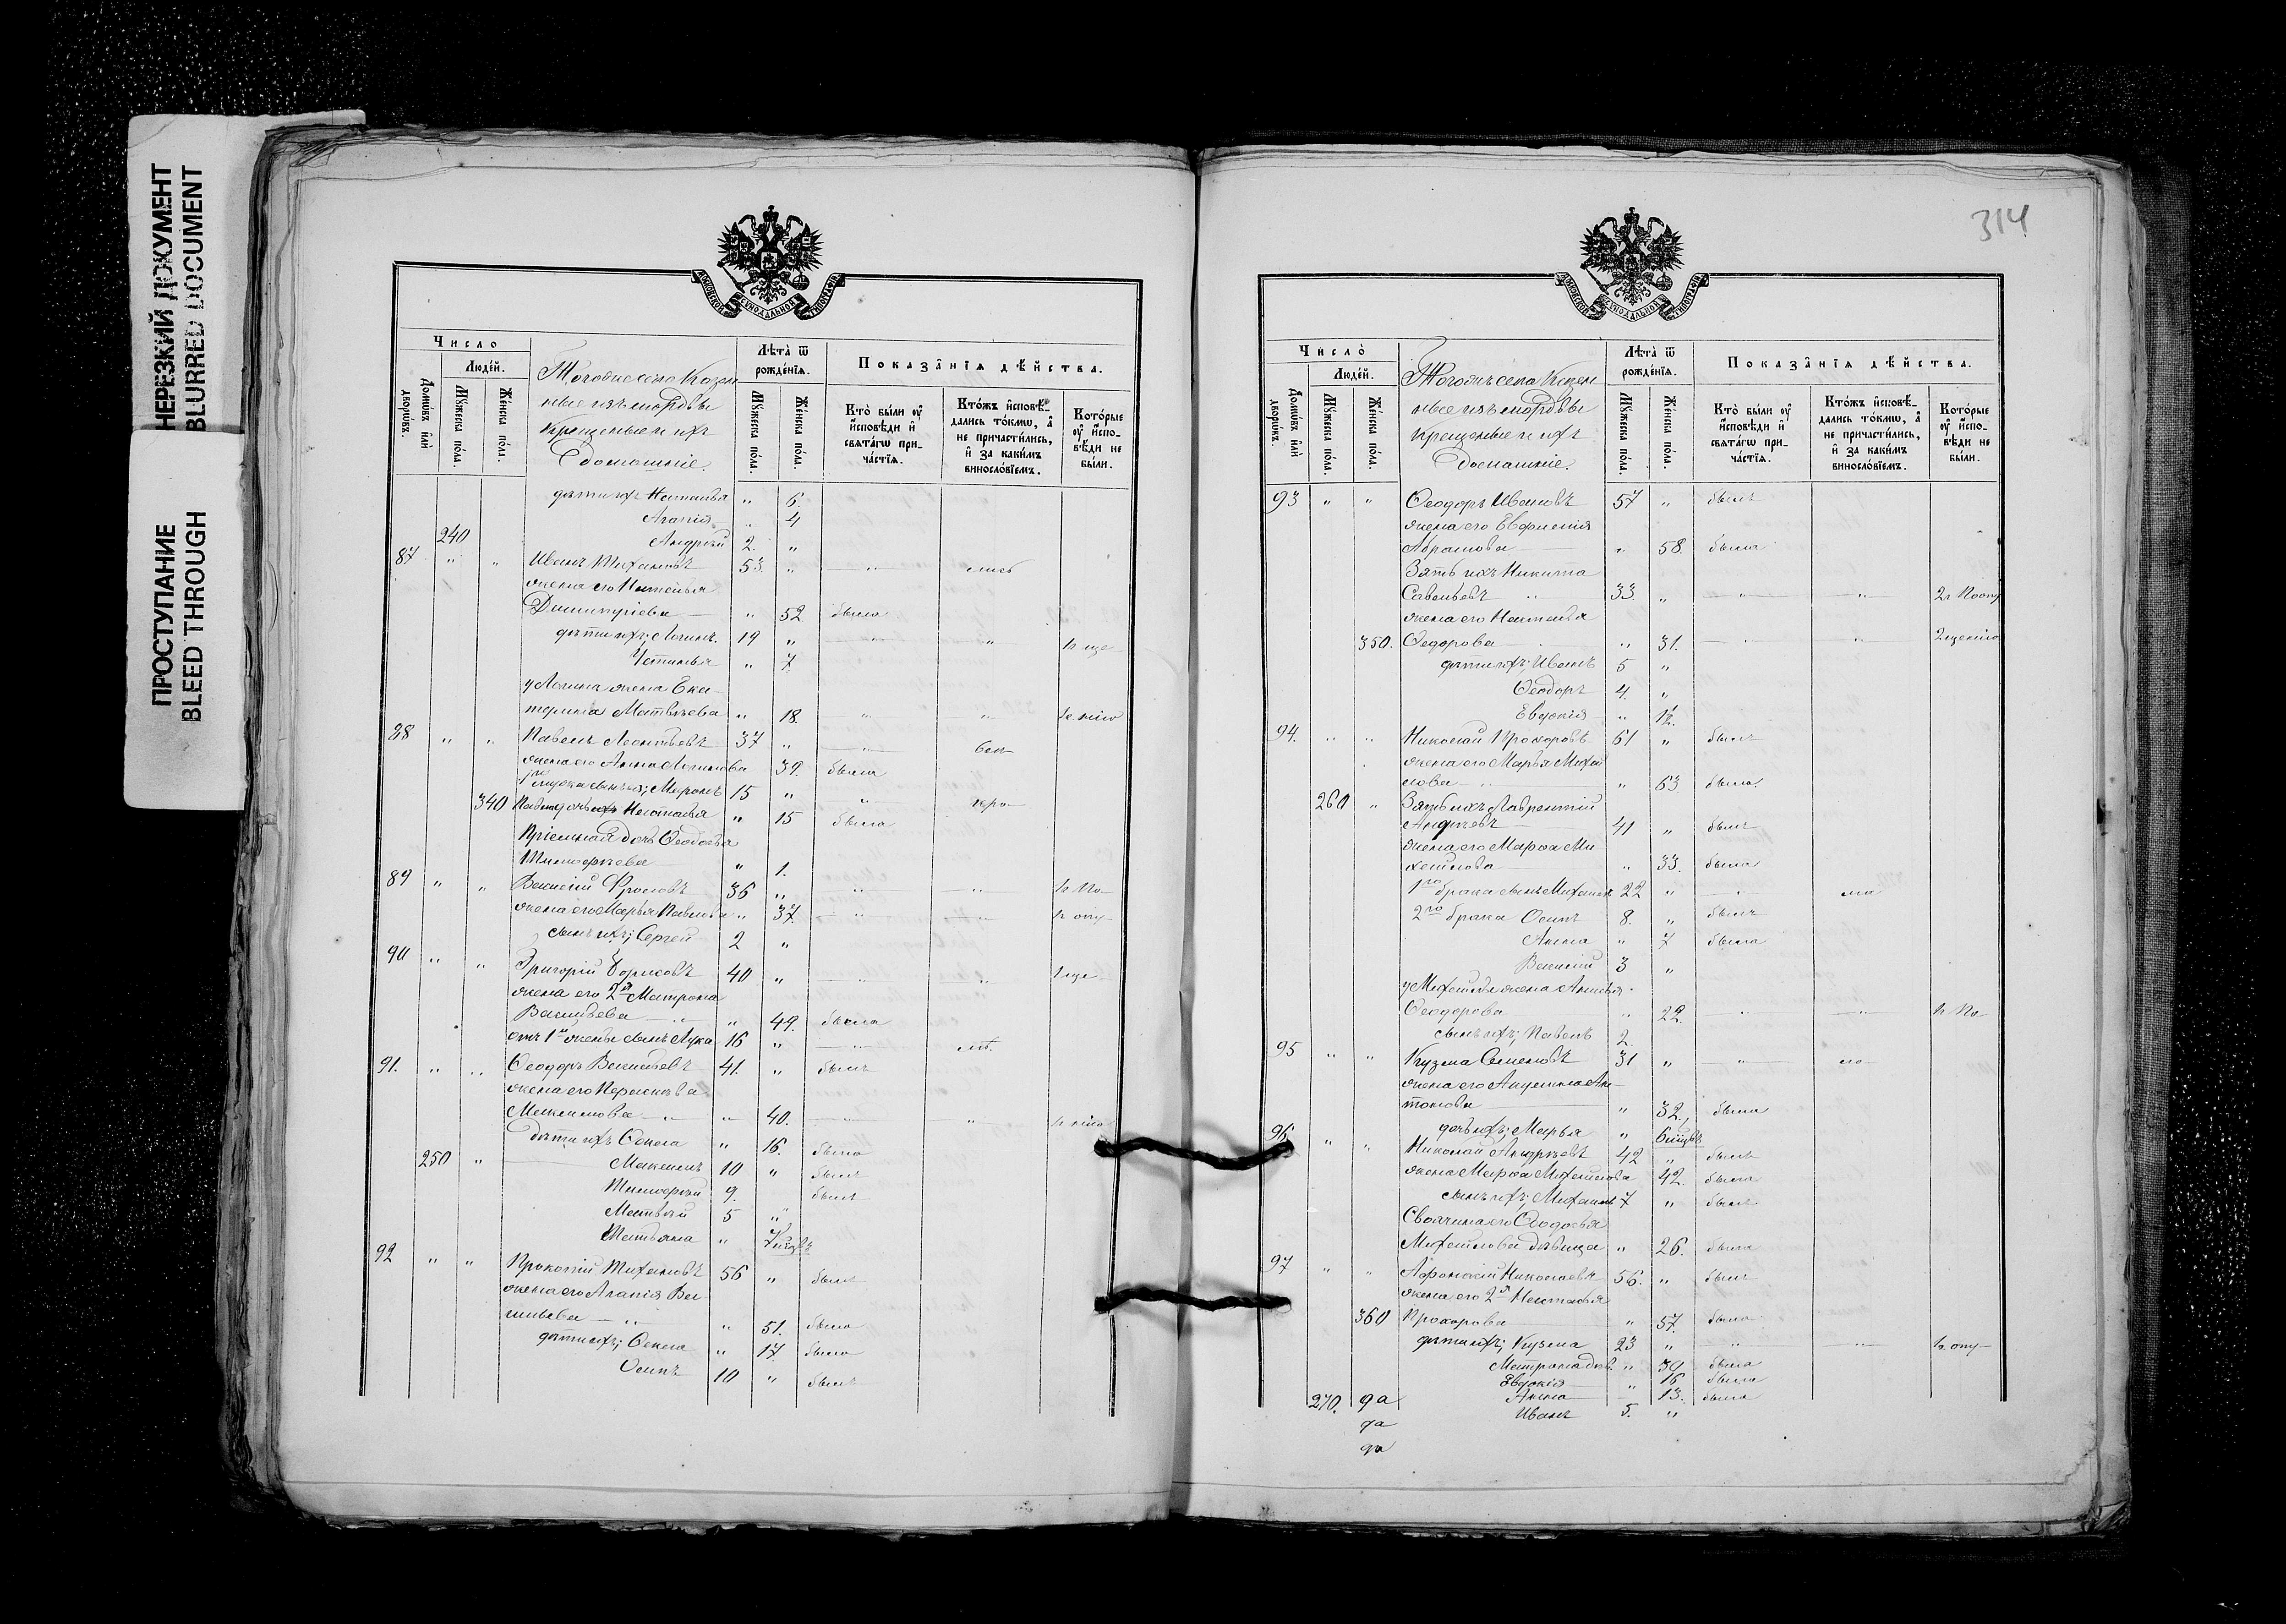 НЕРЕЗКИЙ ДОКУМЕНТ
BLURRED DOCUMENT
ПРОСТУПАНИЕ
BLEED THROUGH
Число
Людей.
Домѡвъ или дворѡвъ.
Мꙋжеска пола.
Женска пола.
Тогоже села Казен
ные изъ мордвы
крещеные и ихъ
домашніе.
Лѣта ѿ рожденїѧ.
Мꙋжеска пола.
Женска пола.
Показанїѧ дѣйства.
Кто были ᲂу исповѣди и свѧтагѡ причастїѧ.
Ктожъ исповѣдались токмѡ, а не причастились, и за какимъ винословїемъ.
Которые ᲂу исповѣди не были.
дѣти ихъ Наталья " 6.
Агапія " 4
240 Андрей 2. "
87 " " Иванъ Тихановъ 53. "
жена его Наталья
Димитріева " 52 была
дѣти ихъ; Логинъ 19 "
Устинья " 7
у Логина жена Ека-
терина Матвѣева " 18.
88 " " Павелъ Леонтьевъ 37 "
жена его Анна Логинова 39. была
Миронъ 15 "
340 Наталья " 15 была
Пріемная дочь Ѳедосья
Тимофѣева " 1.
89 " " Василій Фроловъ 36 "
жена его Марья Павлова " 37.
сынъ ихъ; Сергей 2 "
90 " " Григорій Борисовъ 40 "
жена его 2я Матрона
Васильева " 49. была
отъ 1й жены сынъ Лука 16 "
91. " " Ѳеодоръ Васильевъ 41. " былъ
жена его Параскева
Максимова " 40.
дѣти ихъ Ѳекла " 16. была
250 " Максимъ 10 " былъ
Тимофей 9. былъ
Матвѣй 5 "
Татьяна "
92 " " Прокопій Тихановъ 56 " былъ
жена его Агапія Ва
сильева " 51. была
дѣти ихъ; Ѳекла " 17. была
Осипъ 10 " былъ
314
Число
Людей.
Домѡвъ или дворѡвъ.
Мꙋжеска пола.
Женска пола.
Тогожъ села Казен
ные изъ мордвы
крещеные и ихъ
домашніе.
Лѣта ѿ рожденїѧ.
Мꙋжеска пола.
Женска пола.
Показанїѧ дѣйства.
Кто были ᲂу исповѣди и свѧтагѡ причастїѧ.
Ктожъ исповѣдались токмѡ, а не причастились, и за какимъ винословїемъ.
Которые ᲂу исповѣди не были.
93 " " Ѳеодоръ Ивановъ 57 " былъ
жена его Евфимія
Абрамова " 58. была
Зять ихъ Никита
Савельевъ 33. "
жена его Наталья
350. Ѳедорова " 31.
дѣти ихъ; Иванъ 5 "
Ѳеодоръ 4. "
Евдокія "
94. " " Николай Прохоровъ 61 " былъ
жена его Марья Михай
лова " 63 была.
260 " Зять ихъ Лаврентій
Андреевъ 41 " былъ
жена его Марѳа Ми
хайлова " 33. была
1го брака сынъ Михаилъ 22 "
2го брака Осипъ 8. " былъ
Анна " 7 была
Василій 3 "
у Михаила жена Анисья
Ѳеодорова " 22.
сынъ ихъ; Павелъ 2.
95 " " Кузма Семеновъ 31 "
жена его Акулина Ан-
тонова " 32. была
дочь ихъ; Марья "
96. " " Николай Андреевъ 42 " былъ
жена Марѳа Михайлова 42. была
сынъ ихъ; Михаилъ 7 " былъ
Своячина его Ѳедосья
Михайлова дѣвица " 26. была
97 " " Афонасій Николаевъ 56. " былъ
жена его 2я Наталья
360 Прохорова " 57. была
дѣти ихъ; Кузма 23 "
Матрона дѣв. " 39. была
Евдокія " 16 была
270. Анна 13. была
Иванъ 5. "